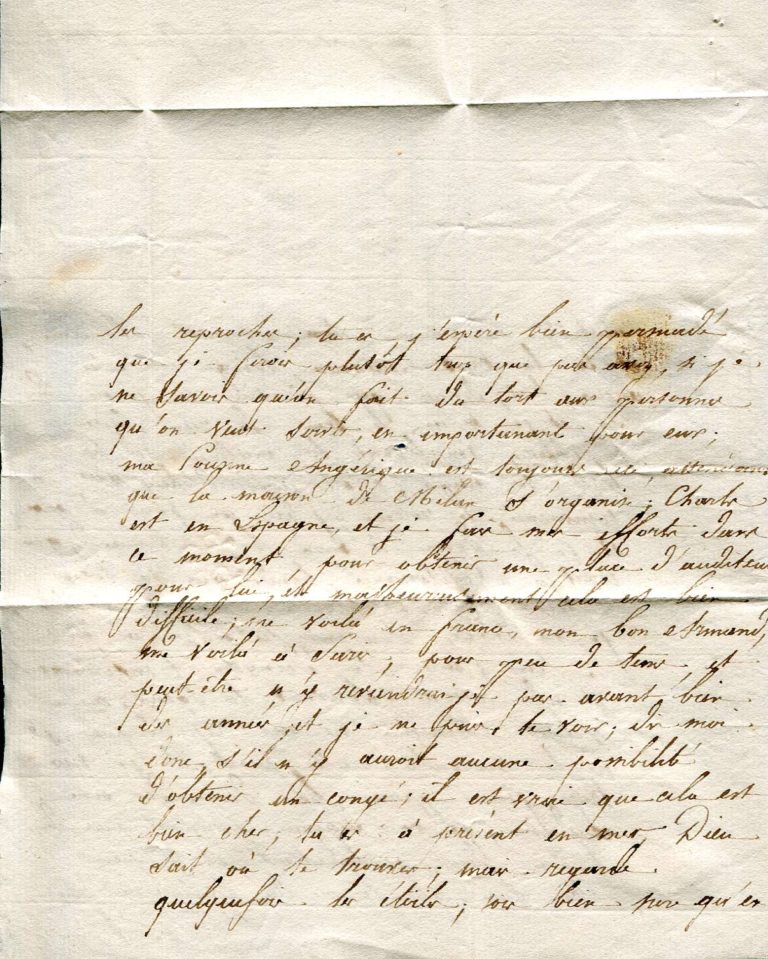 les reproches; tu es, j'espère bien persuadé
que je ferois plutôt trop que pas assez, si je
ne savois qu'on fait du tort aux personnes
qu'on veut servir, en importunant pour eux;
ma Cousine Angérique est toujours ici, attendant
que la maison de Milan s'organise; Charles
est en Espagne, et je fais mes efforts dans
ce moment, pour obtenir une place d'auditeur
pour lui, et malheureusement cela est bien
difficile; me voilà en france, mon bon Armand,
me voilà à Paris, pour peu de tems, et
peut-être n'y reviendrai je pas avant bien
des années, et je ne puis te voir; dis moi
donc, s'il n'y auroit aucune possibilité
d'obtenir un congé; il est vrai que cela est
bien cher; tu es à présent en mer, Dieu
sait où te trouver; mais regarde
quelquefois les étoiles; sois bien sur qu'en